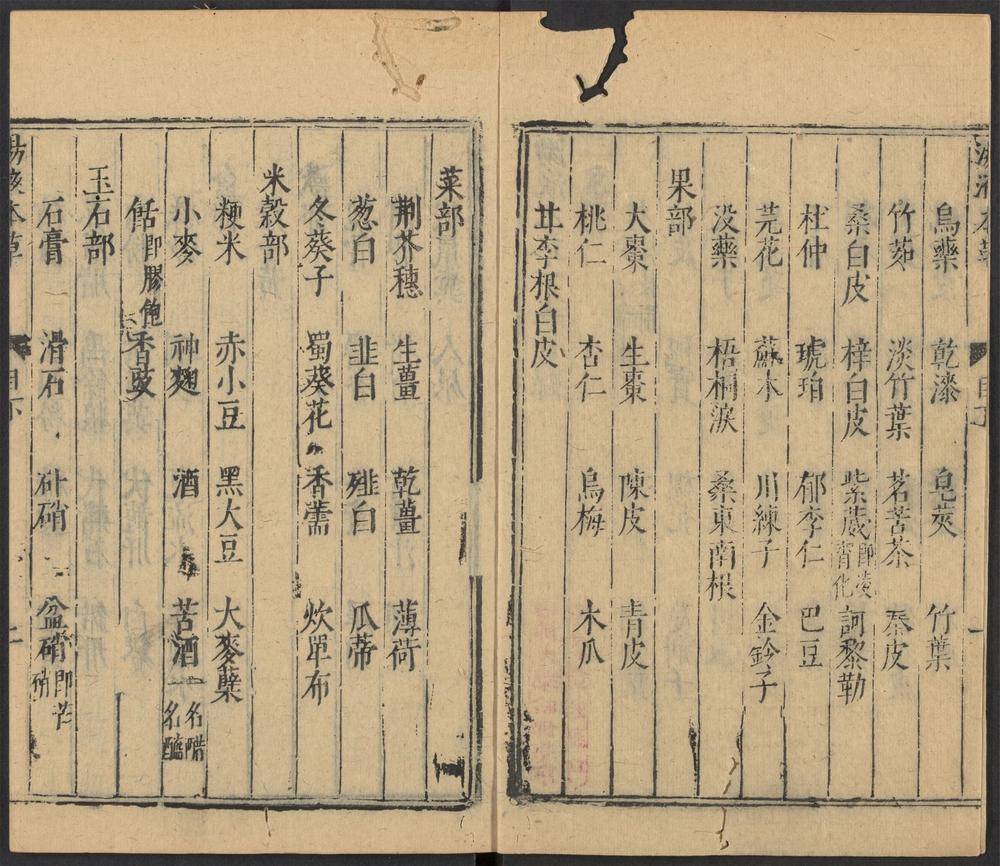 烏藥 乾漆 皂莢 竹葉
竹茹 淡竹葉 茗苦茶 秦皮
桑白皮 梓白皮 紫葳即凌霄化 訶黎勒
杜仲 琥珀 郁李仁 巴豆
芫花 蘇木 川練子 金鈴子
没藥 梧桐淚 桑東南根
果部
大棗 生棗 陳皮 青皮
桃仁 杏仁 烏梅 木瓜
甘李根白皮
菜部
荆芥穗 生薑 乾薑 薄荷
葱白 韭白 薤白 瓜蒂
冬葵子 蜀葵花 香薷 炊單布
米穀部
粳米 赤小豆 黑大豆 大麥蘖
小麥 神麴 酒 苦酒一名醋名醯
餂即膠飽 香豉
玉石部
石膏 滑石 朴硝 盆硝即芒硝
湯液本草 目下 二